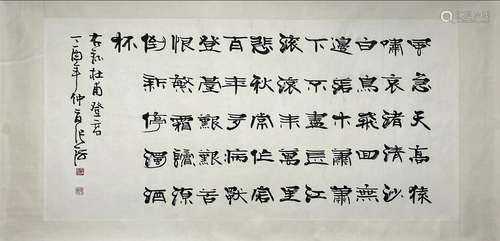 風急天高猿
嘯哀渚清沙
白鳥飛回無
邊落木蕭蕭
下不盡長江
滾滾來萬里
悲秋常作客
百年多病獨
登臺艱難苦
恨繁霜鬢潦
倒新停濁酒
杯
右录杜甫登高
丁酉年仲夏张海